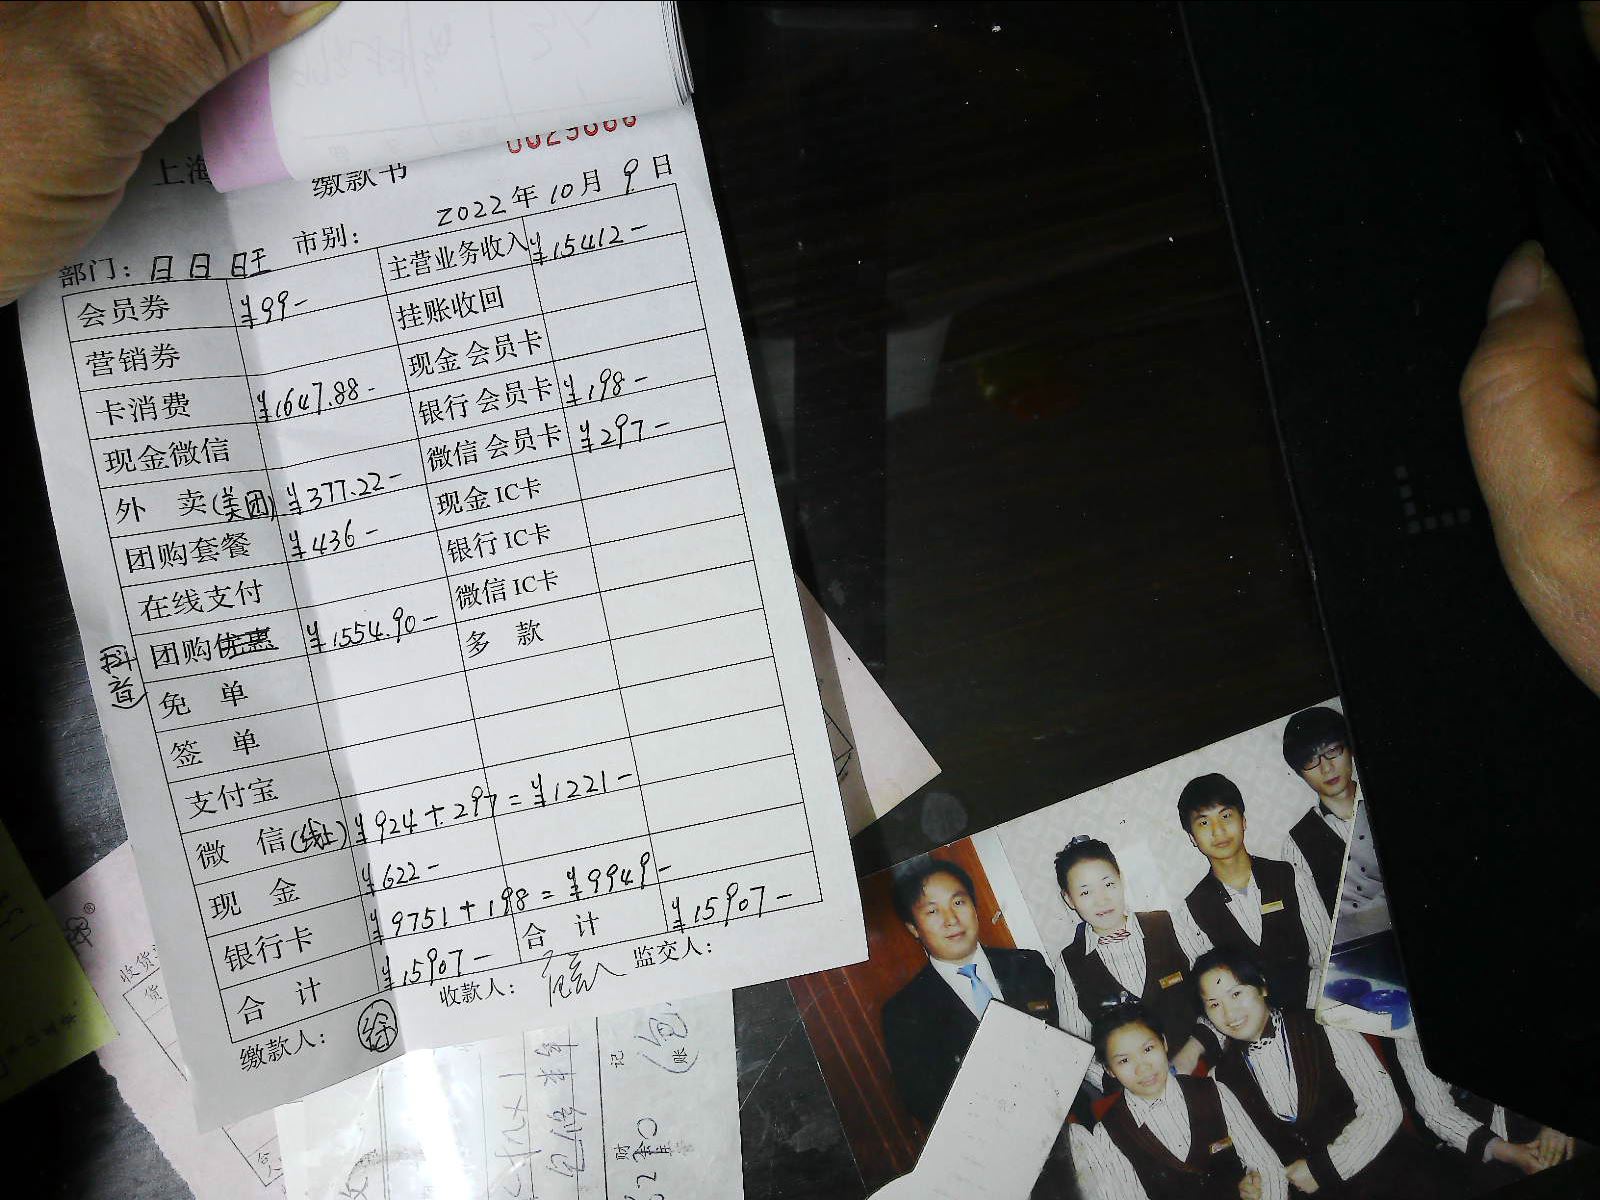 0029666
上海 缴款书
2022年10月9日
部门：日日旺 市别：
会员券 ¥99- 主营业务收入 ¥15412-
营销券 挂账收回
卡消费 ¥1647.88- 现金会员卡
现金微信 银行会员卡 ¥198-
外 卖(美团) ¥377.22- 微信会员卡 ¥297-
团购套餐 ¥436- 现金IC卡
在线支付 银行IC卡
团购优惠 ¥1554.90- 微信IC卡
(抖音)
免 单 多 款
签 单
支付宝
微 信(线上) ¥924+297=¥1221-
现 金 ¥622-
银行卡 ¥9751+198=¥9949-
合 计 ¥15907- 合 计 ¥15907-
缴款人： 徐 收款人： 监交人：
收货
货
记
账